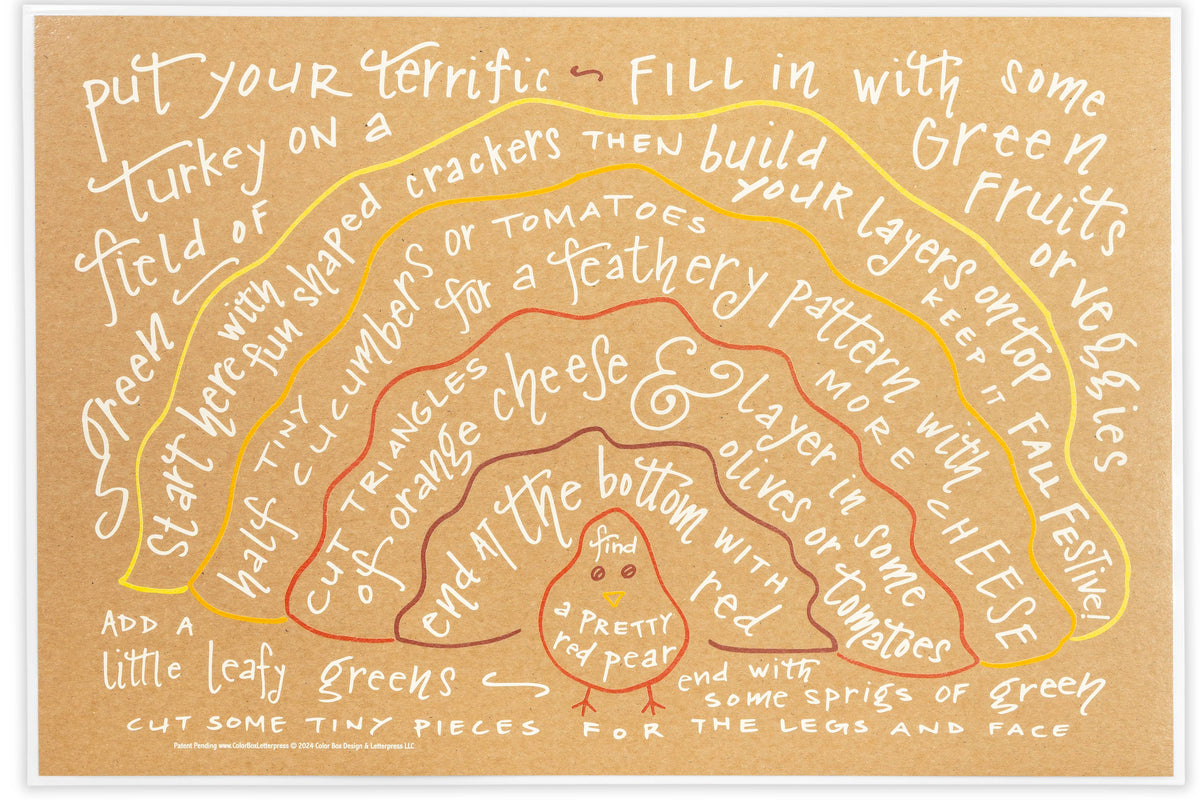 put YOUR terrific ~ FILL in with some
turkey ON a
field OF
green
Green
FRuits
or veggies
Start here with
fun shaped crackers THEN build
YOUR layers on top
KEEP IT FALL FESTIVE!
half TINY
CUCUMBERS or TOMATOES
for a feathery pattern with
CHEESE
CUT TRIANGLES
of orange cheese & layer in some
MORE
olives or tomatoes
end AT the bottom with
red
find
a PRETTY
red pear
ADD A
little leafy greens
end with
some sprigs OF green
CUT SOME TINY PIECES FOR THE LEGS AND FACE
Patent Pending www.ColorBoxLetterpress © 2024 Color Box Design & Letterpress LLC